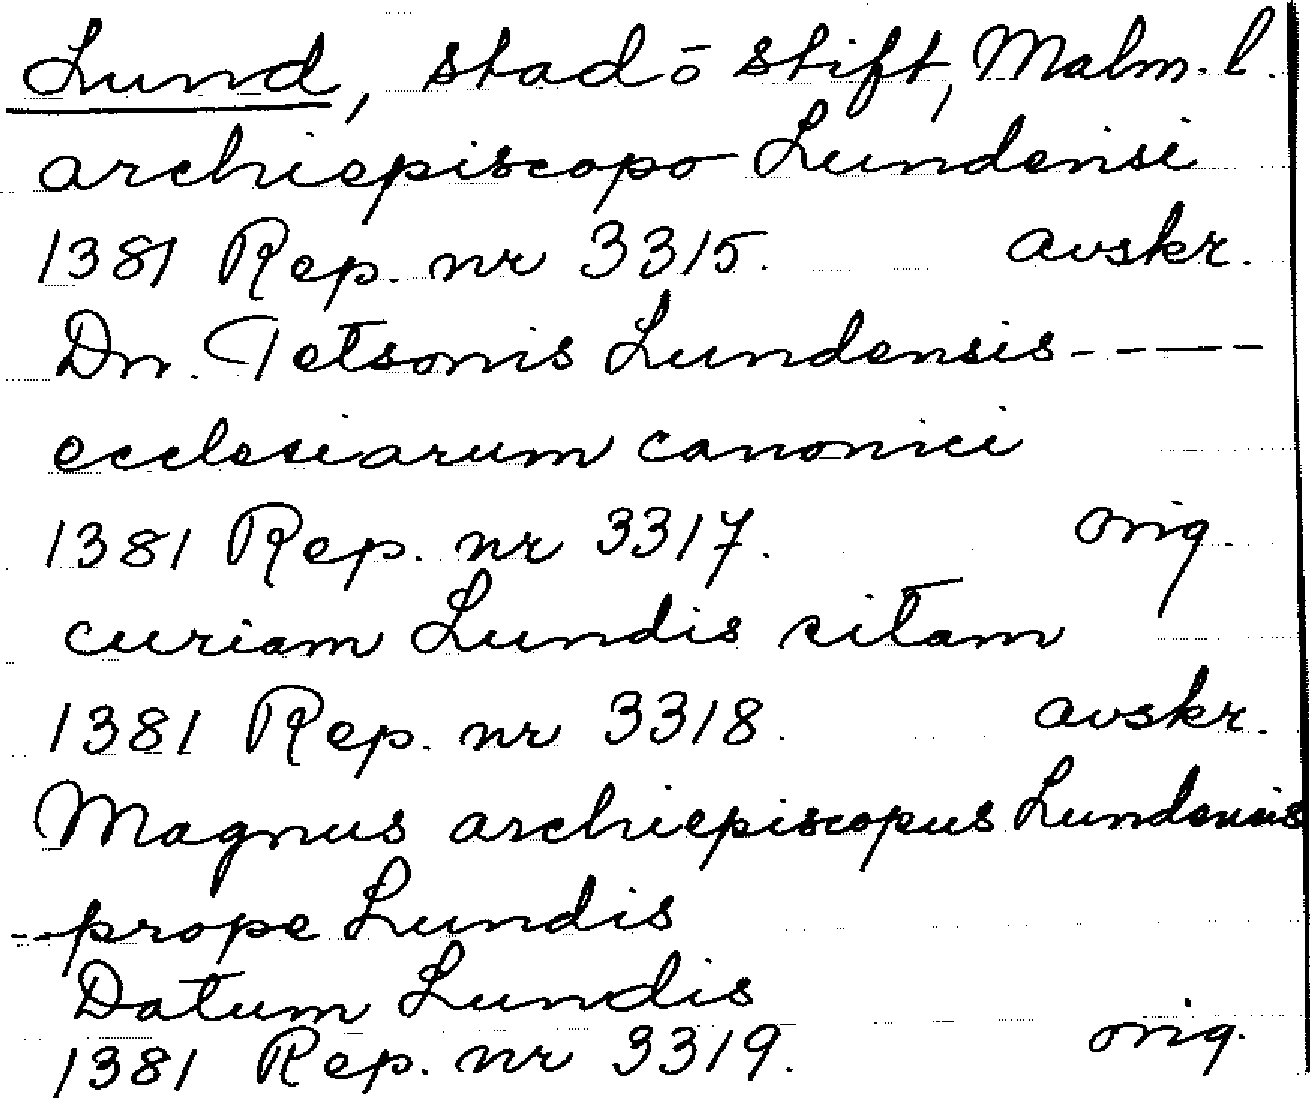 Lund, stad o stift, Malm. l.
archiepiscopo Lundensi
1381 Rep. nr 3315. avskr.
Dn. Tetsonis Lundensis-----
ecclesiarum canonici
1381 Rep. nr 3317. orig.
curiam Lundis sitam
1381 Rep. nr 3318. avskr.
Magnus archiepiscopus Lundensis
--prope Lundis
Datum Lundis
1381 Rep. nr 3319. orig.